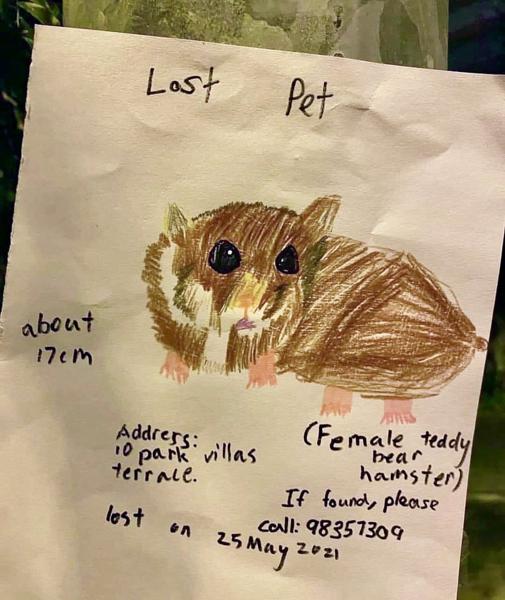 Lost Pet
about
17cm
Address:
10 park villas
terrace.
(Female teddy
bear
hamster)
If found, please
call: 98357309
lost on 25 May 2021